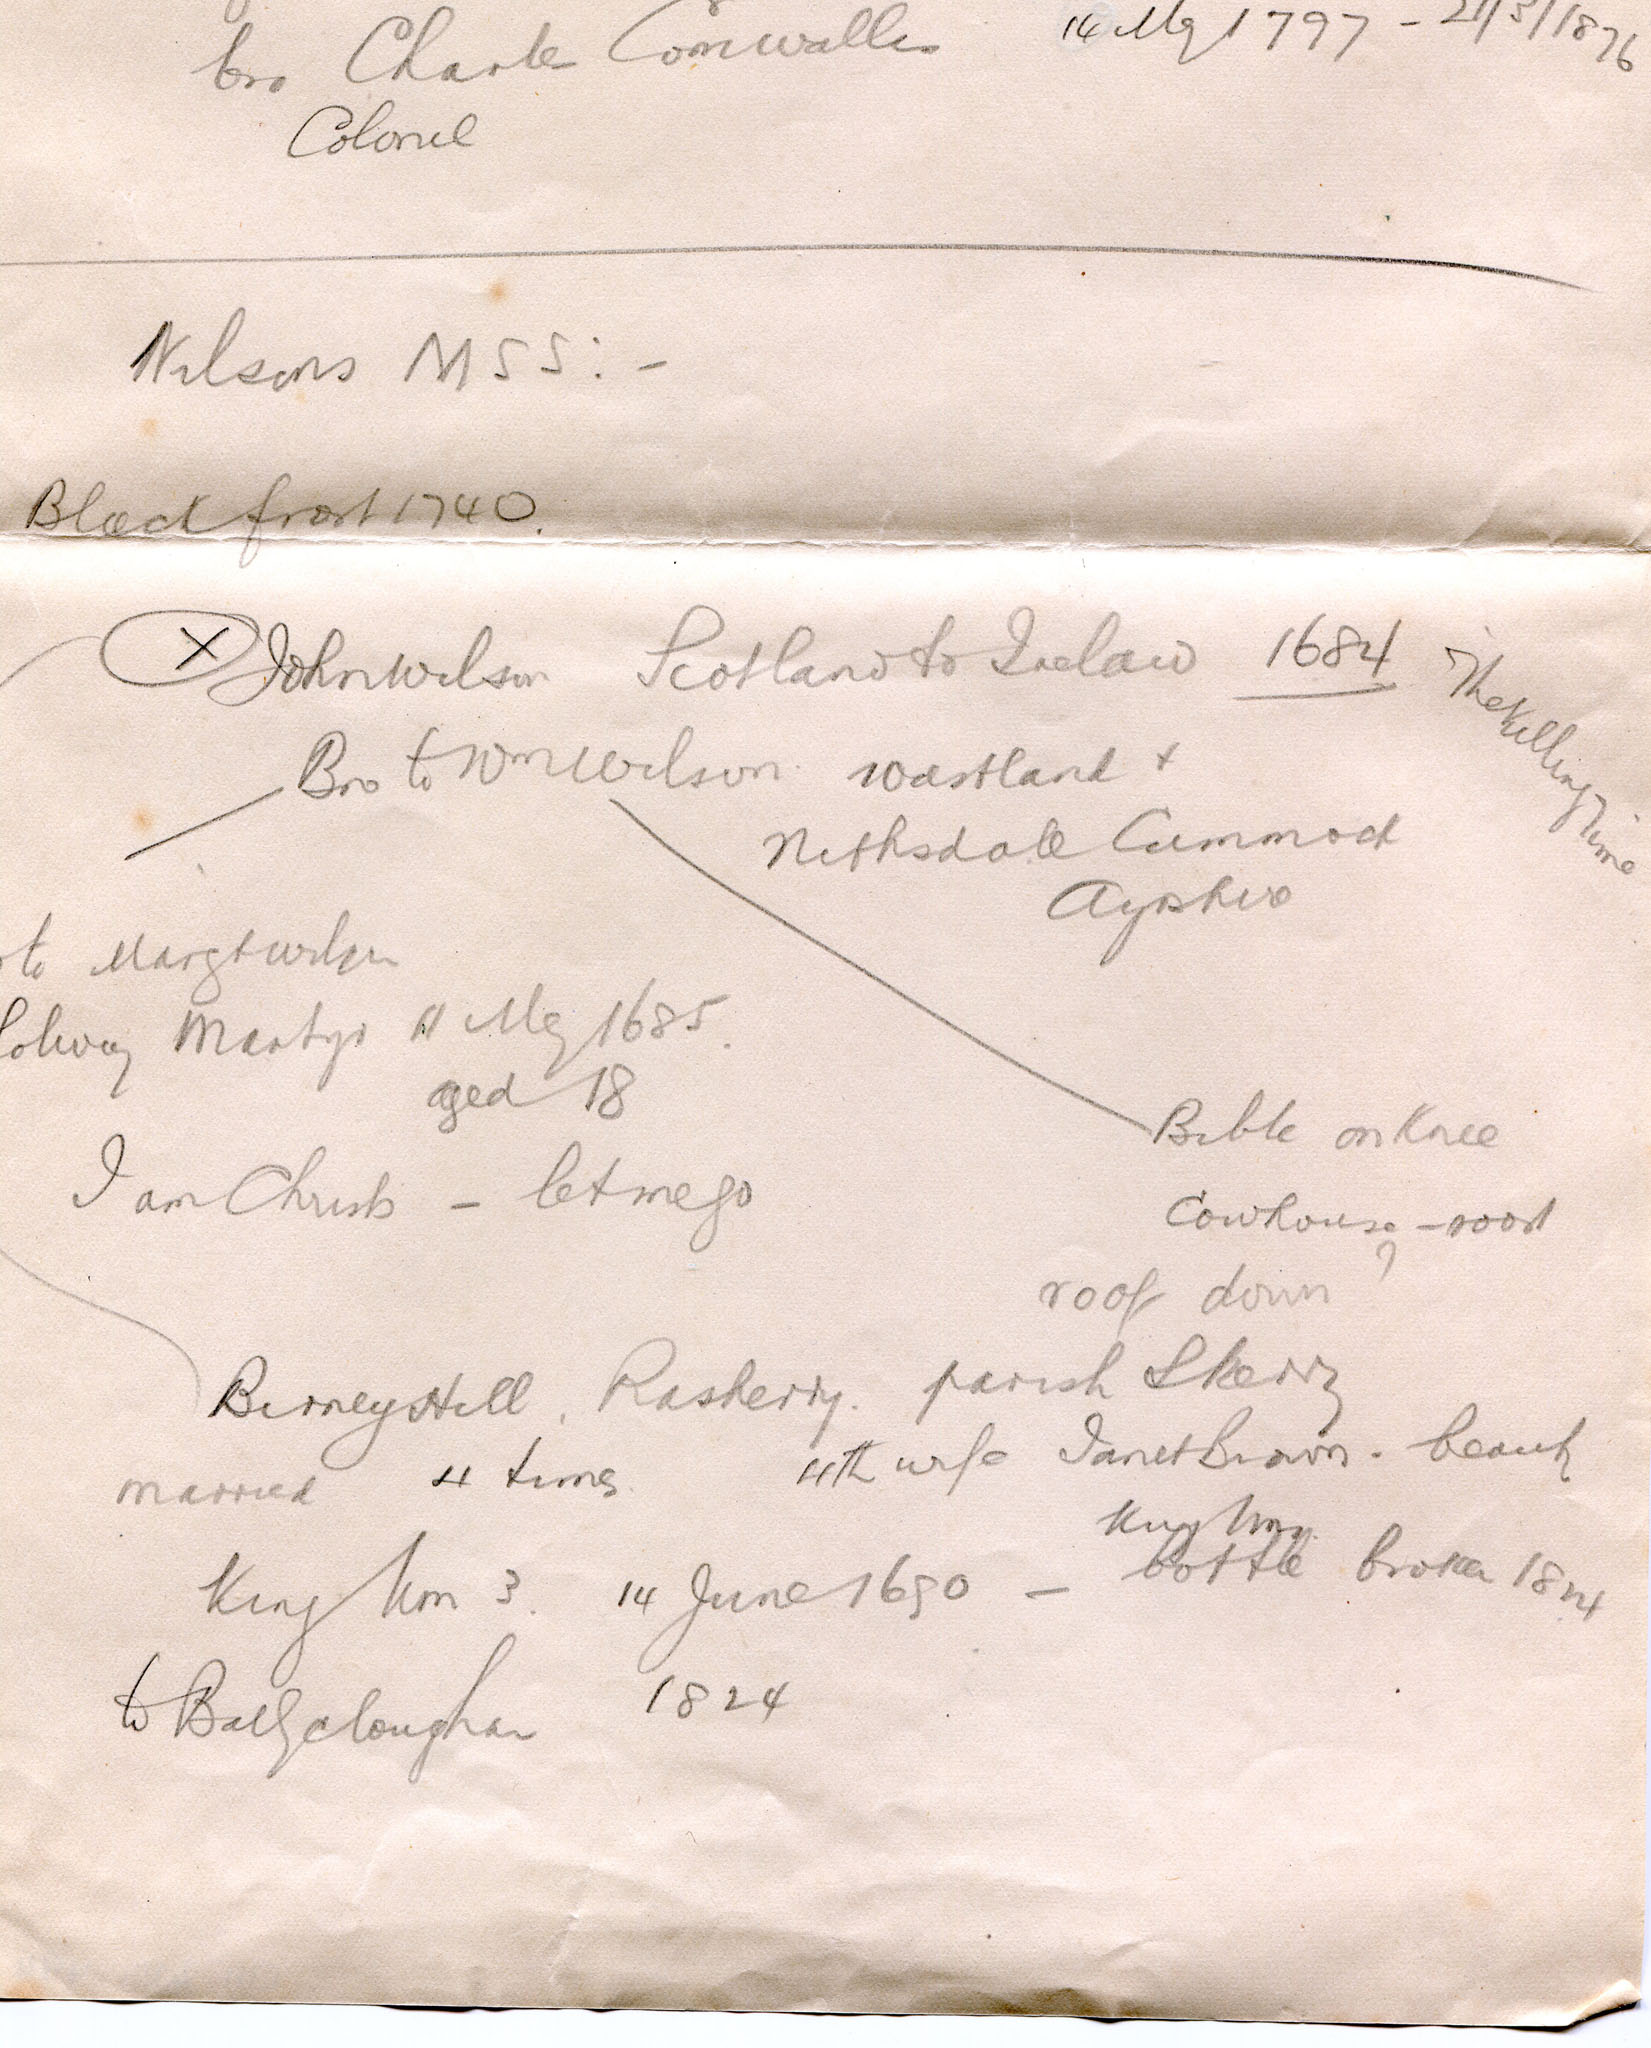 bro Charles Cornwallis 14 May 1797 - 21/3/1876
Colonel
Nelsons MSS: -
Black frost 1740.
X John Wilson Scotland to Ireland 1684 "The Killing Time"
Bro to Wm Wilson Wastland +
Nithsdale Cummock
Ayrshire
to Margt Wilson
Solway Martyr 11 May 1685.
aged 18
I am Christs - let me go
Bible on Knee
Cowhouse - roost
?
roof down
Birney Hill, Rasherry. parish Skerry
married 4 times. 4th wife Janet Brown - beauty
King Wm
King Wm 3. 14 June 1690 - bottle broken 1824
to Ballycloughan 1824